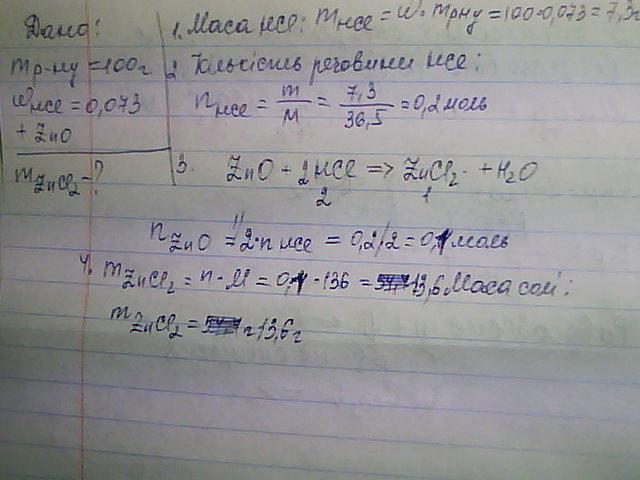 Дано:
mр-ну = 100г
ω HCl = 0,073
+ ZnO
m ZnCl2 - ?
1. Маса HCl: m HCl = ω · m р-ну = 100 · 0,073 = 7,3г
2. Кількість речовини HCl:
n HCl = m/M = 7,3/36,5 = 0,2 моль
3. ZnO + 2HCl => ZnCl2 + H2O
2 1
n ZnO = 2·n HCl = 0,2/2 = 0,1 моль
4. m ZnCl2 = n · M = 0,1 · 136 = 13,6 Маса солі:
m ZnCl2 = 13,6г